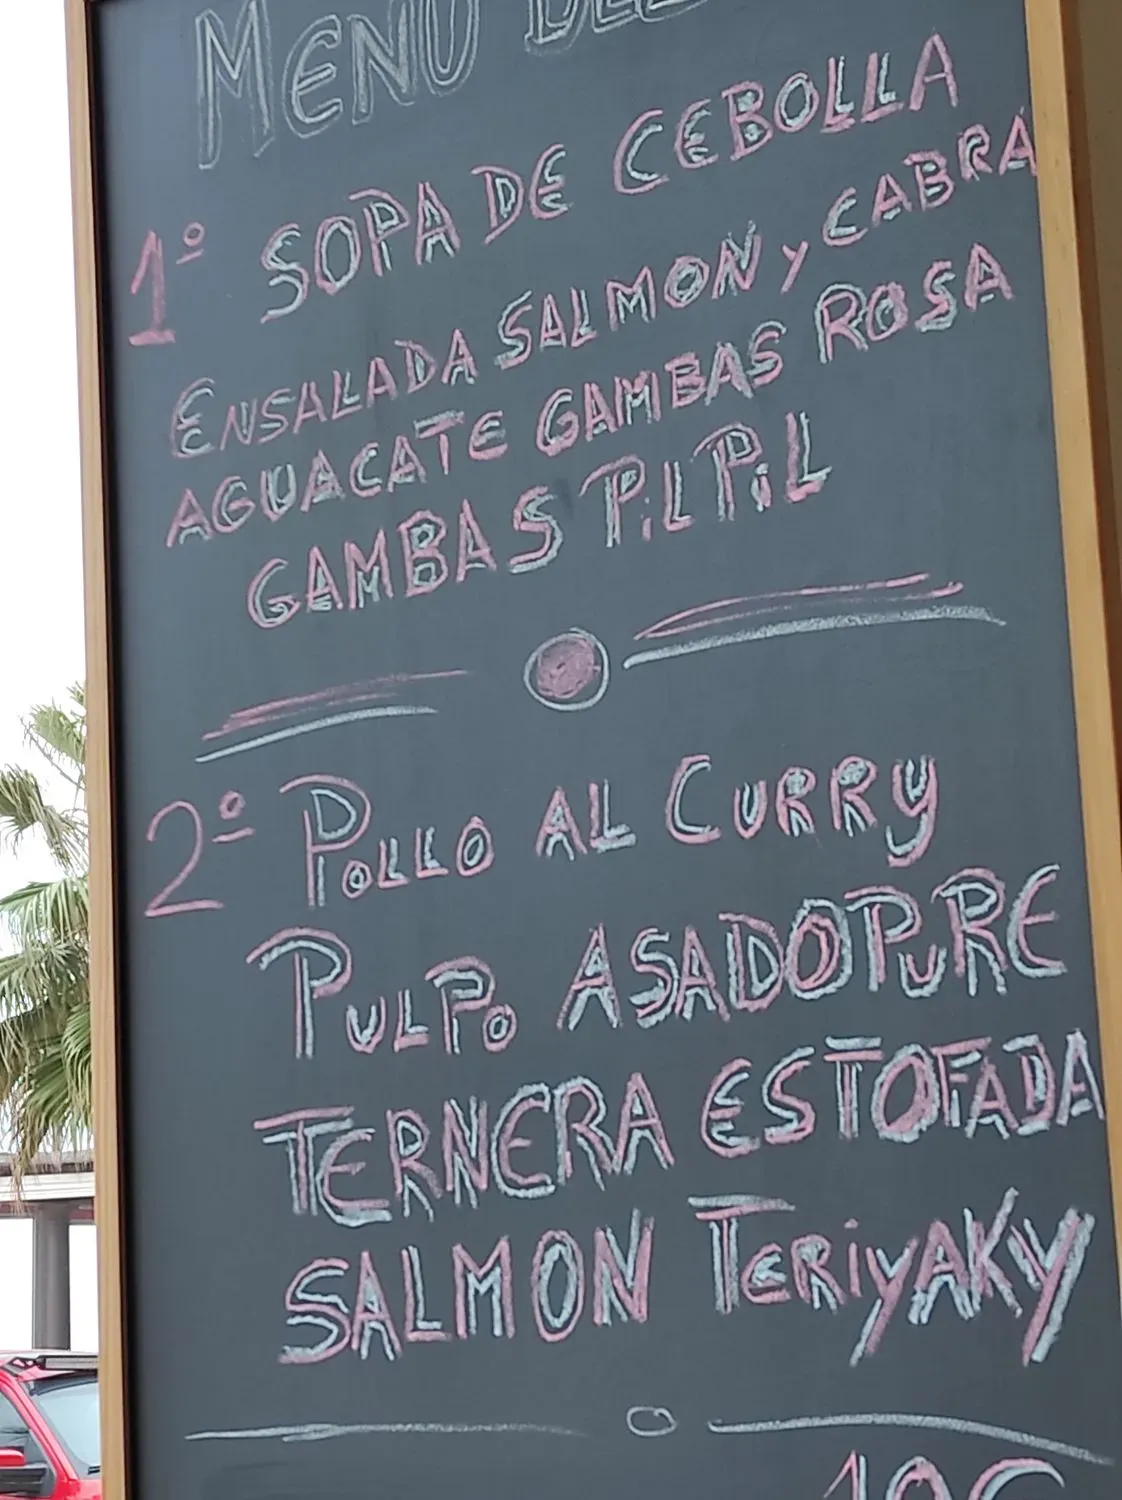 MENU DEL
1º SOPA DE CEBOLLA
ENSALADA SALMON y CABRA
AGUACATE GAMBAS ROSA
GAMBAS PiL PiL
2º POLLO AL CURRY
PULPO ASADO PURE
TERNERA ESTOFADA
SALMON TERiyAKy